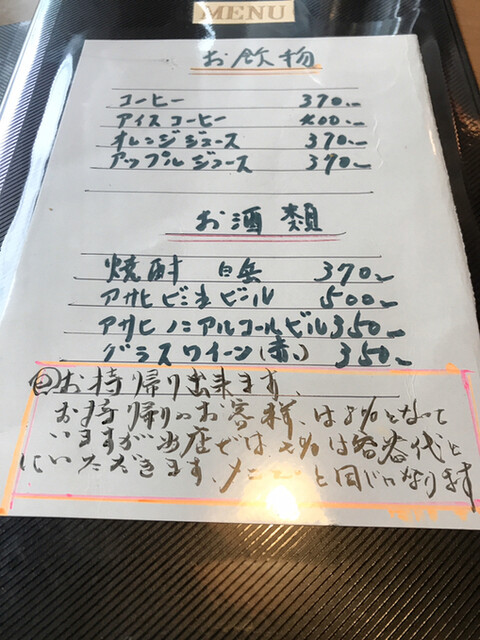 MENU
お飲物
コーヒー 370.-
アイスコーヒー 400.-
オレンジジュース 370.-
アップルジュース 370.-
お酒類
焼酎 白岳 370.-
アサヒビン生ビール 500.-
アサヒノンアルコールビル 350.-
グラスワイーン(赤) 350.-
お持帰り出来ます、
お持帰りのお客様、は8%となって
いますが当店では、2%は容器代と
にいただきます、メニューと同じになります